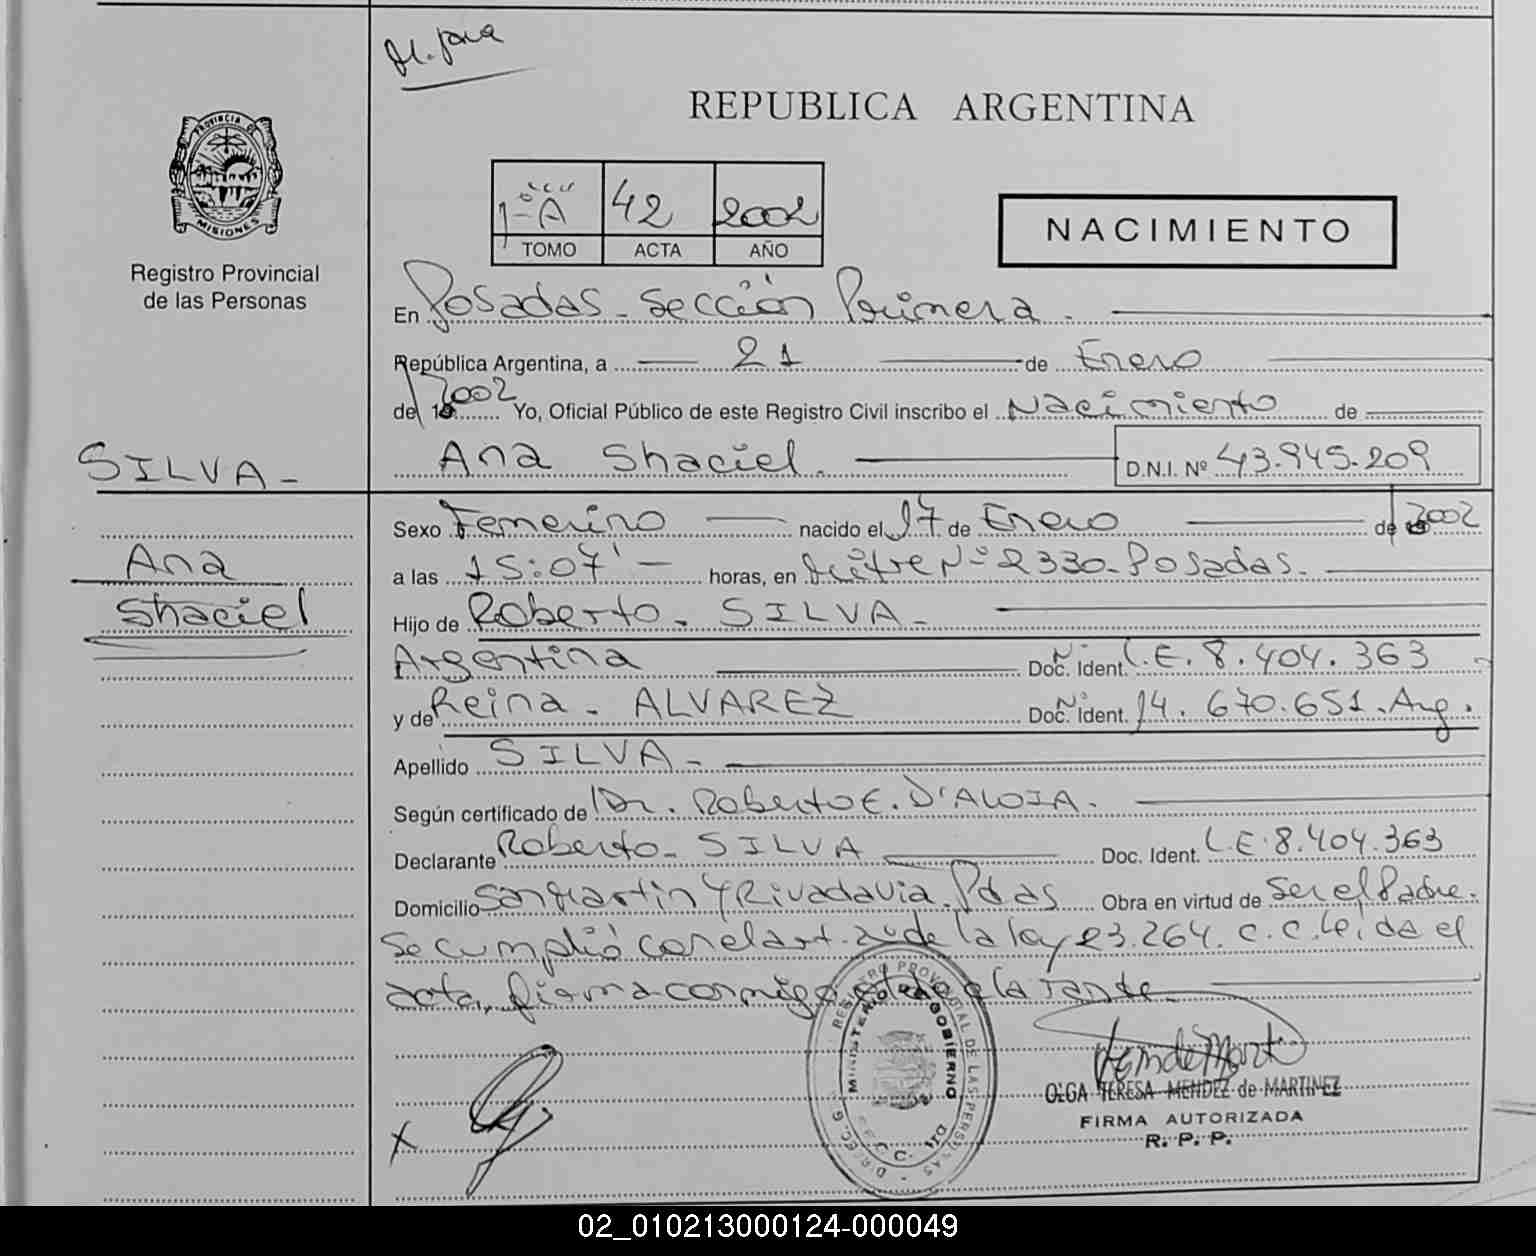 REPUBLICA ARGENTINA
PROVINCIA DE
MISIONES
Registro Provincial
de las Personas
1-"A" 42 2002
TOMO ACTA AÑO
NACIMIENTO
En Posadas - Sección Primera.
República Argentina, a 21 de Enero
de 2002 Yo, Oficial Público de este Registro Civil inscribo el Nacimiento de
Ana Shaciel. D.N.I. Nº 43.945.209
SILVA -
Ana
Shaciel
Sexo Femenino nacido el 17 de Enero de 2002
a las 15:07' - horas, en Mitre Nº 2330 - Posadas.
Hijo de Roberto - SILVA -
Argentina Doc. Ident. Nº L.E. 8.404.363
y de Reina - ALVAREZ Doc. Ident. Nº 14.670.651. Arg.
Apellido SILVA -
Según certificado de Dr. Roberto E. D'ALOIA.
Declarante Roberto - SILVA Doc. Ident. L.E. 8.404.363
Domicilio San Martin Y Rivadavia. Pdas Obra en virtud de Ser el Padre.
Se cumplió con el art. de la ley 23.264. C.C. Leída el
acta, firma conmigo el declarante.
REGISTRO PROVINCIAL DE LAS PERSONAS
MINISTERIO DE GOBIERNO
OLGA TERESA MENDEZ de MARTINEZ
FIRMA AUTORIZADA
R. P. P.
02_010213000124-000049